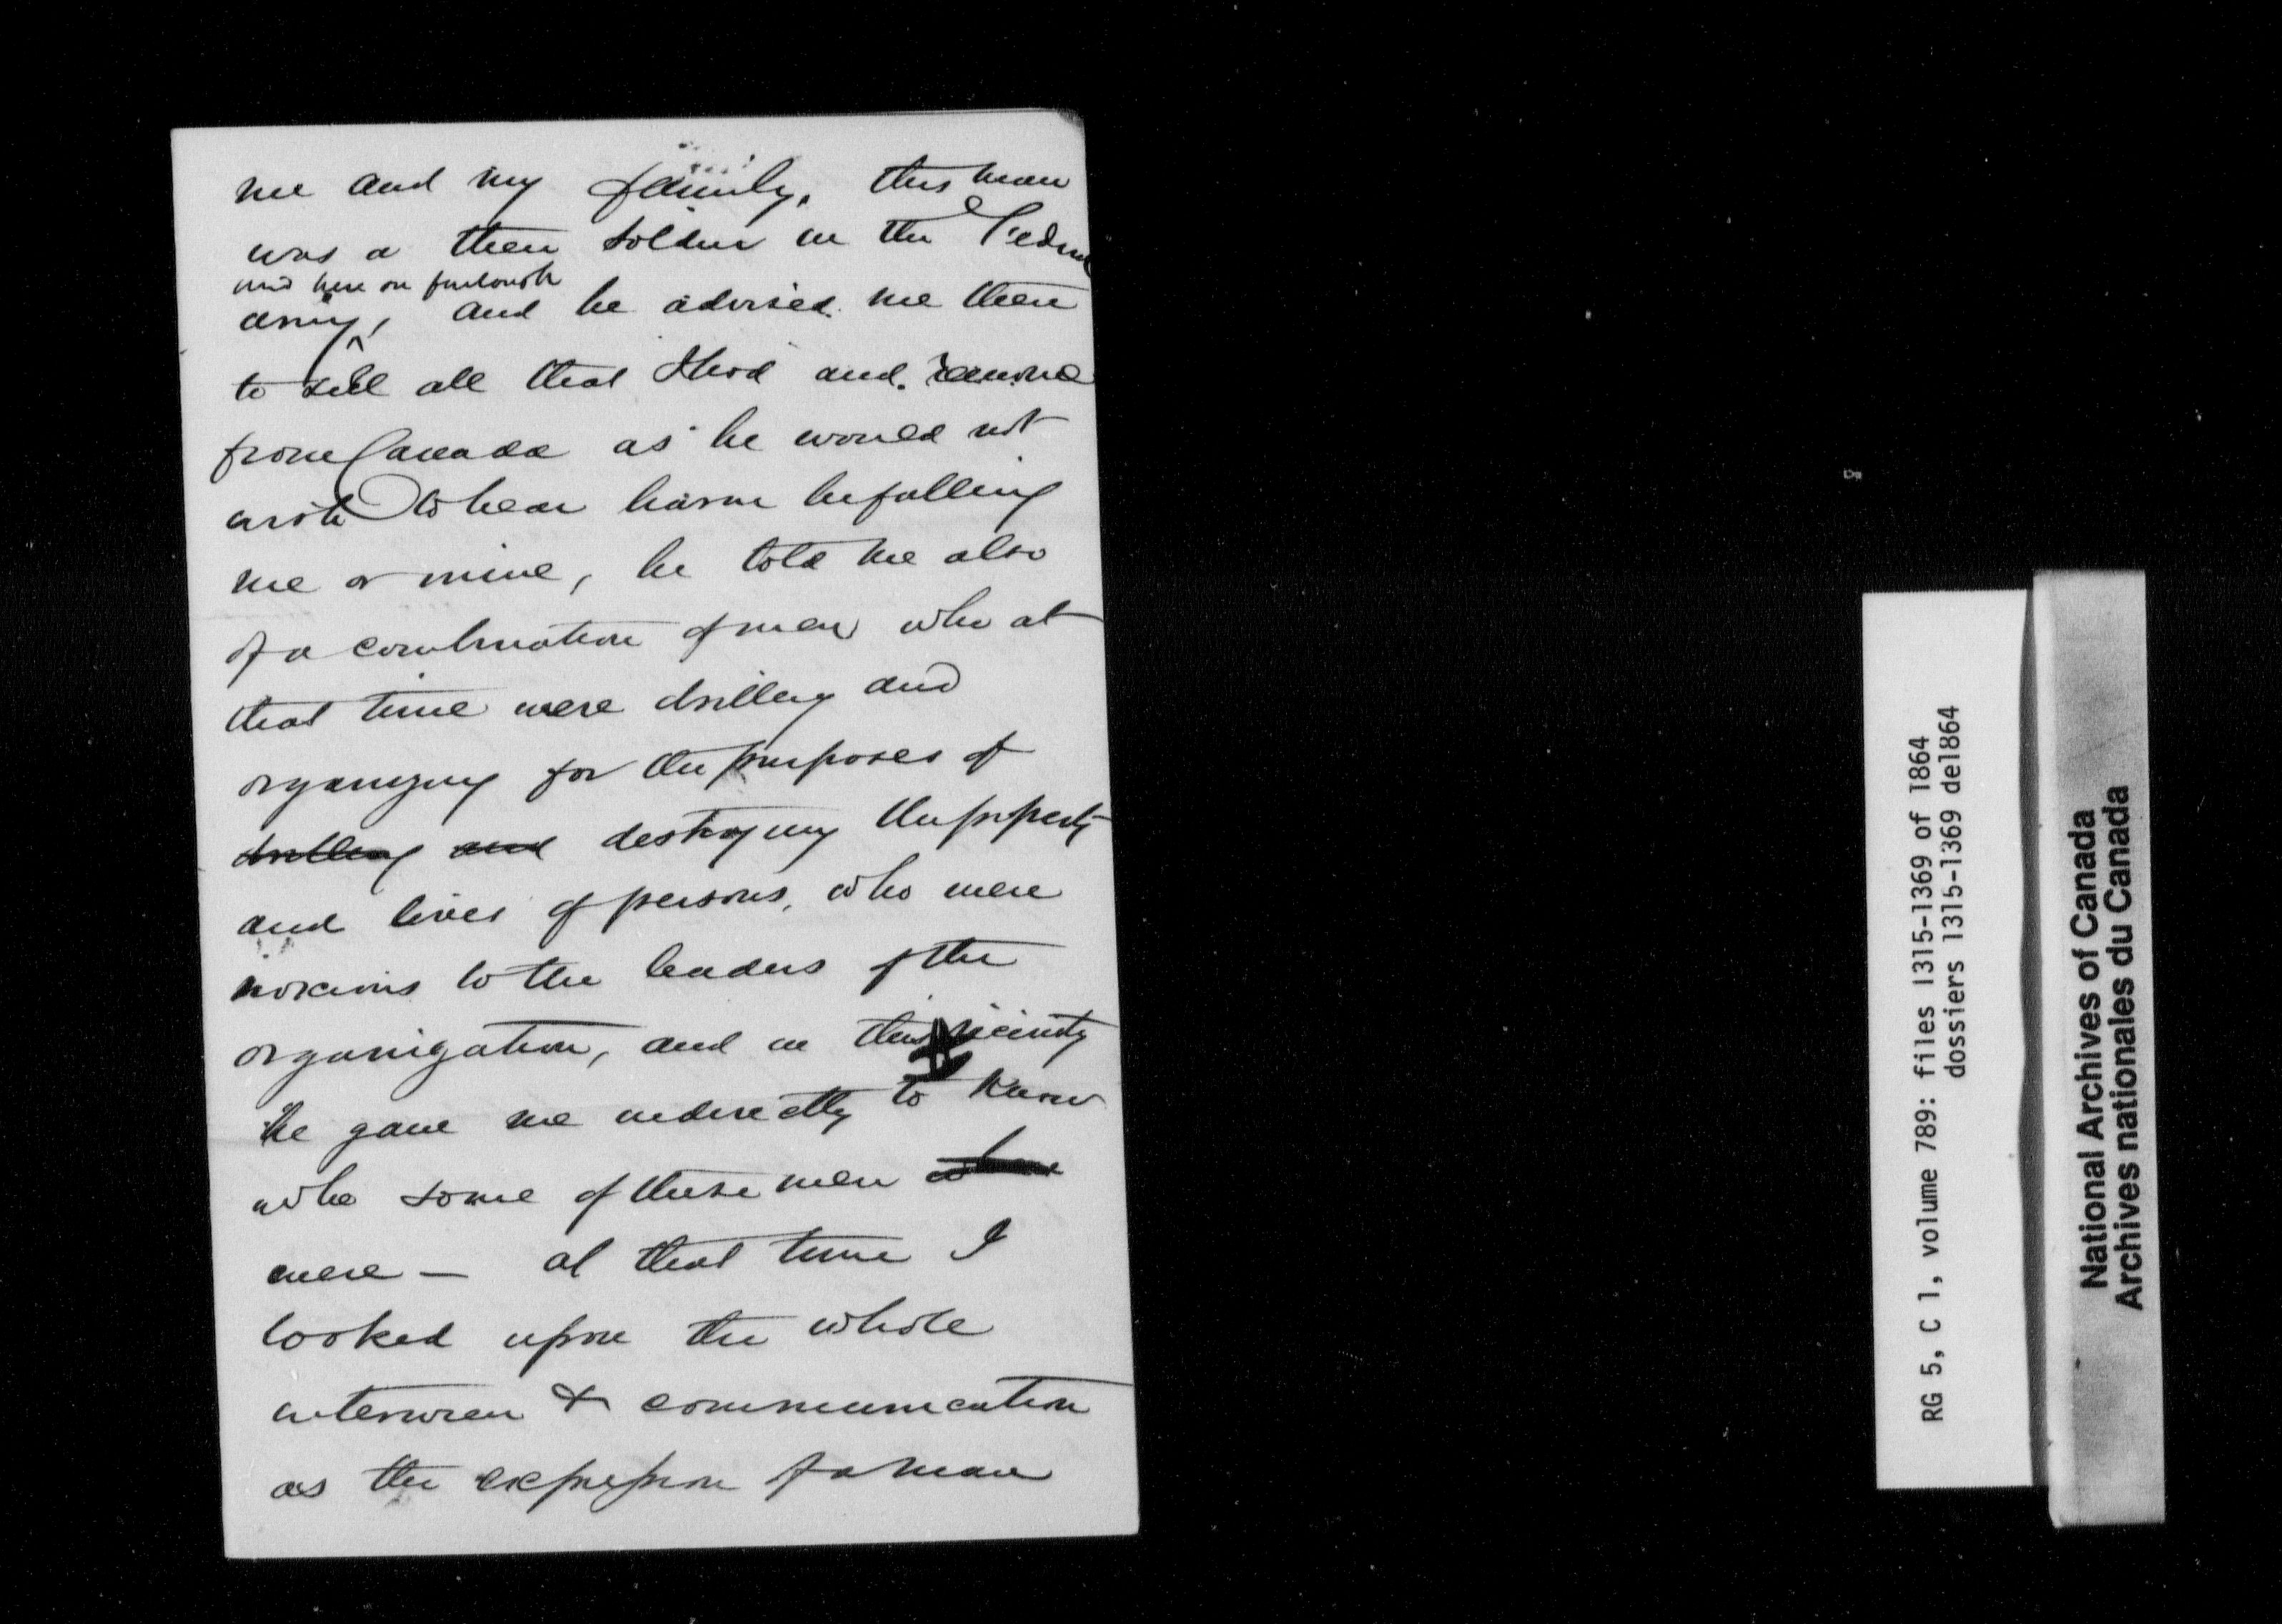 me and my family, this man
was a then soldier in the Federal
and here on furlough
army, and he advised me then
to sell all that I had and remove
from Canada as he would not
wish to hear harm befalling
me or mine, he told me also
of a combination of men who at
that time were drilling and
organizing for the purposes of
drilling and destroying the property
and lives of persons, who were
noxious to the leaders of the
organization, and in this vicinity
He gave me indirectly to know
who some of these men
were — at that time I
looked upon the whole
interview & communication
as the expression of a man
RG 5, C 1, volume 789: files 1315-1369 of 1864
dossiers 1315-1369 de1864
National Archives of Canada
Archives nationales du Canada